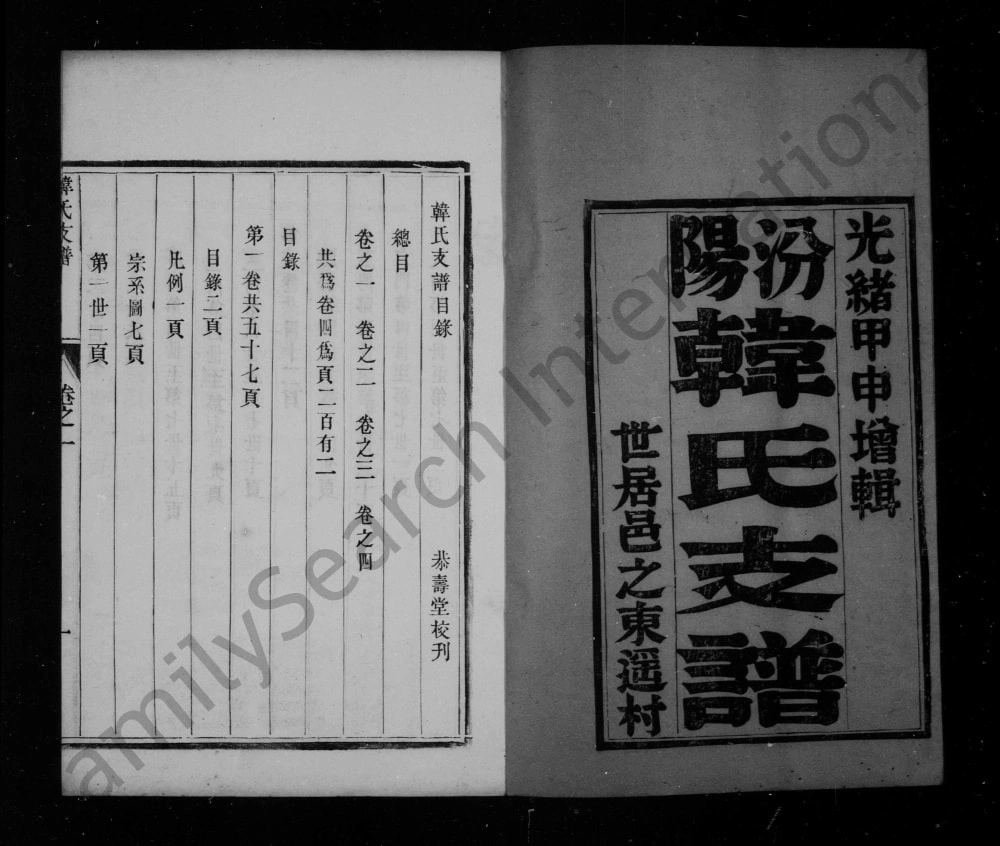 光緒甲申增輯
汾陽韓氏支譜
世居邑之東遥村
韓氏支譜目錄 恭壽堂校刊
總目
卷之一 卷之二 卷之三 卷之四
共爲卷四爲頁二百有二
目錄
第一卷共五十七頁
目錄二頁
凡例一頁
宗系圖七頁
第一世一頁
韓氏支譜 卷之一 一
FamilySearch International